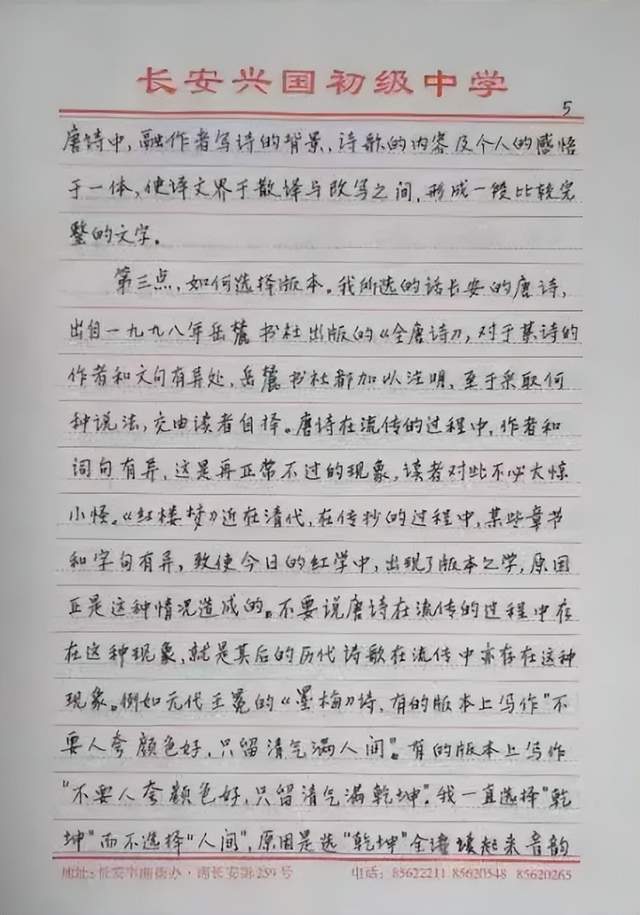 长安兴国初级中学
5
唐诗中，融作者写诗的背景，诗歌的内容及个人的感悟
于一体，使译文界于散译与改写之间，形成一段比较完
整的文字。
第三点，如何选择版本。我所选的话长安的唐诗，
出自一九九八年岳麓书社出版的《全唐诗》，对于某诗的
作者和文句有异处，岳麓书社都加以注明，至于采取何
种说法，交由读者自择。唐诗在流传的过程中，作者和
词句有异，这是再正常不过的现象，读者对此不必大惊
小怪。《红楼梦》近在清代，在传抄的过程中，某些章节
和字句有异，致使今日的红学中，出现了版本之学，原因
正是这种情况造成的。不要说唐诗在流传的过程中存
在这种现象，就是其后的历代诗歌在流传中亦存在这种
现象。例如元代王冕的《墨梅》诗，有的版本上写作"不
要人夸颜色好，只留清气满人间"。有的版本上写作
"不要人夸颜色好，只留清气满乾坤"。我一直选择"乾
坤"而不选择"人间"，原因是选"乾坤"全诗读起来音韵
地址：长安市南街办·南长安街259号 电话：85622211 85620548 85620265